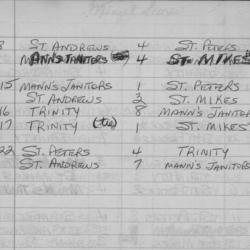 Midget Scores
8 ST. ANDREWS 4 ST. PETERS
MANN'S JANITORS 4 ST. MIKES
15 MANN'S JANITORS 1 ST. PETERS
ST. ANDREWS 2 ST. MIKES
16 TRINITY 8 MANN'S JANITOR
17 TRINITY (tie) 1 ST. MIKES
22 ST. PETERS 4 TRINITY
ST. ANDREWS 7 MANN'S JANITORS